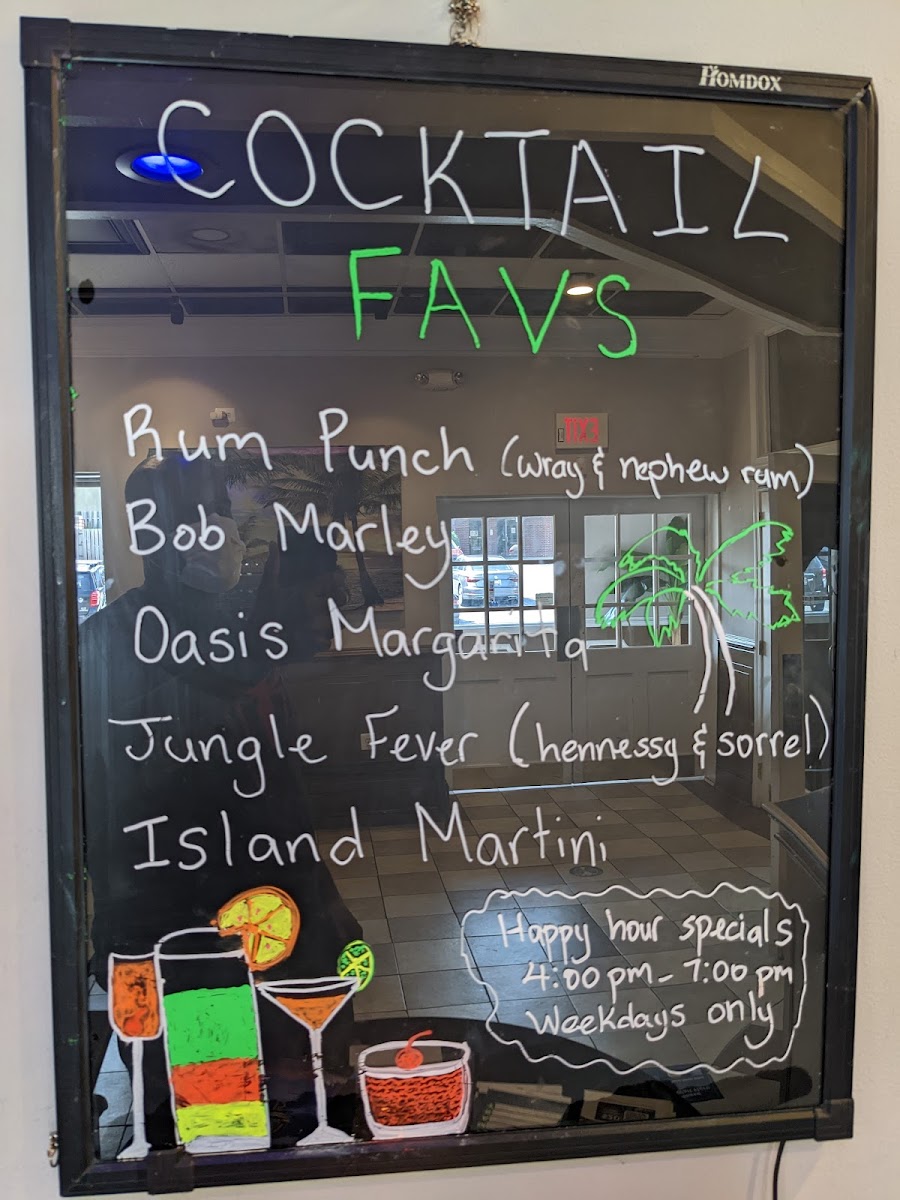 HOMDOX
COCKTAIL
FAVS
Rum Punch (wray & nephew rum)
Bob Marley
Oasis Margarita
Jungle Fever (hennessy & sorrel)
Island Martini
Happy hour specials
4:00 pm - 7:00 pm
Weekdays only